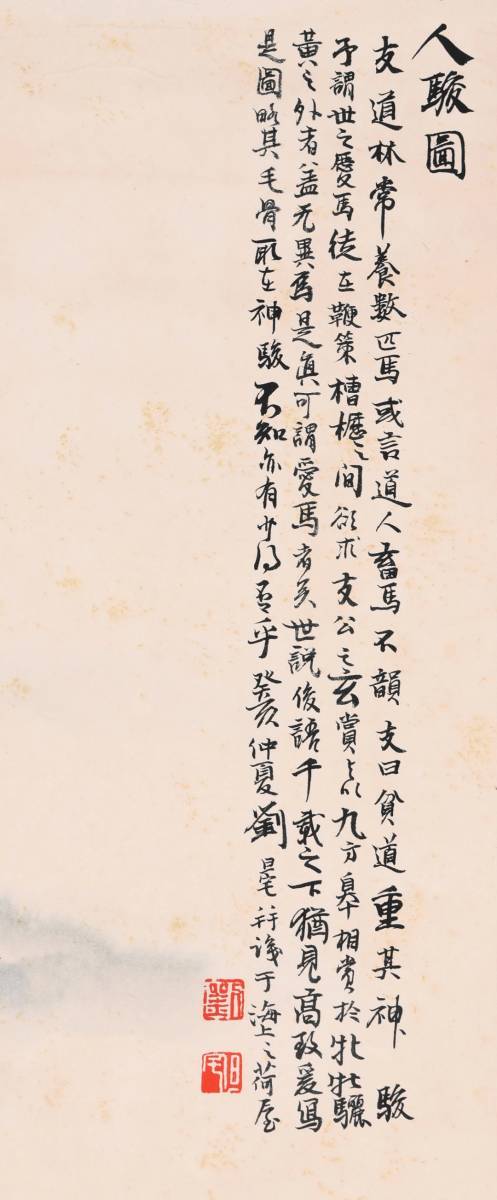 人駿圖
支道林常養數匹馬或言道人畜馬不韻支曰貧道重其神駿
予謂世之愛馬徒在鞭策槽櫪之間欲求支公之玄賞与以九方皋相賞於牝牡驪
黃之外者蓋无異焉是真可謂愛馬者矣世說後語千載之下猶見高致爰寫
是圖略其毛骨取在神駿不知亦有少得否乎癸亥仲夏劉旦宅并識于海上之荷屋
劉
旦宅